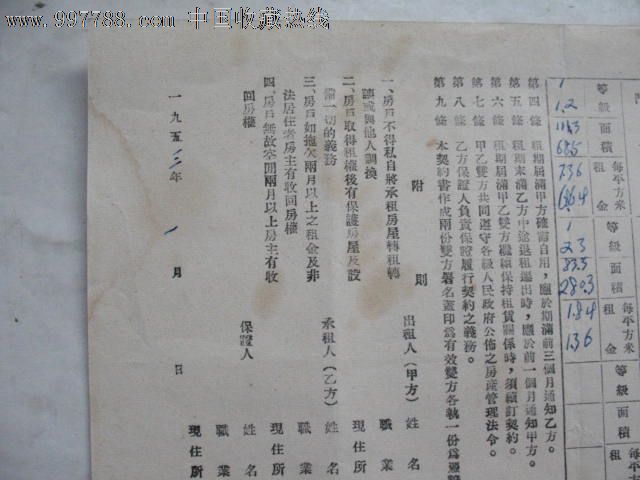 www.997788.com 中国收藏热线
等級
面積
每平方米
租金
1
1.2
736
等級
面積
每平方米
租金
1
23
83.5
2803
1.84
136
等級
面積
每平方米
租
第四條 租期屆滿甲方確需自用，應於期滿前三個月通知乙方。
第五條 租期未滿乙方中途退租遷出時，應於前一個月通知甲方。
第六條 租期屆滿甲乙雙方繼續保持租賃關係時，須續訂契約。
第七條 甲乙雙方共同遵守各級人民政府公佈之房產管理法令。
第八條 乙方保證人負責保證履行契約之義務。
第九條 本契約書作成兩份雙方署名蓋印爲有效雙方各執一份爲憑
附則
一、房戶不得私自將承租房屋轉租轉
讓或與他人調換
二、房戶取得租權後有保護房屋及設
備一切的義務
三、房戶如拖欠兩月以上之租金及非
法居住者房主有收回房權
四、房戶無故空閒兩月以上房主有收
回房權
出租人（甲方）姓名
職業
現住所
承租人（乙方）姓名
職業
現住所
保證人 姓名
職業
現住所
一九五三年 1 月 日